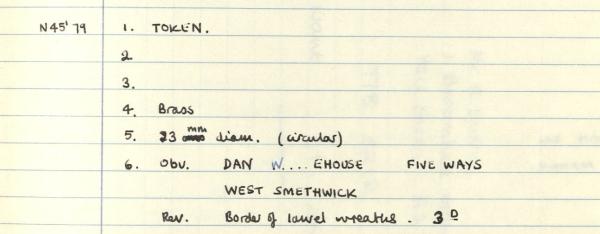 N45'79 1. TOKEN.
2
3.
4. Brass
5. 23 mm diam. (circular)
6. Obv. DAN W....EHOUSE FIVE WAYS
WEST SMETHWICK
Rev. Border of laurel wreaths. 3 D